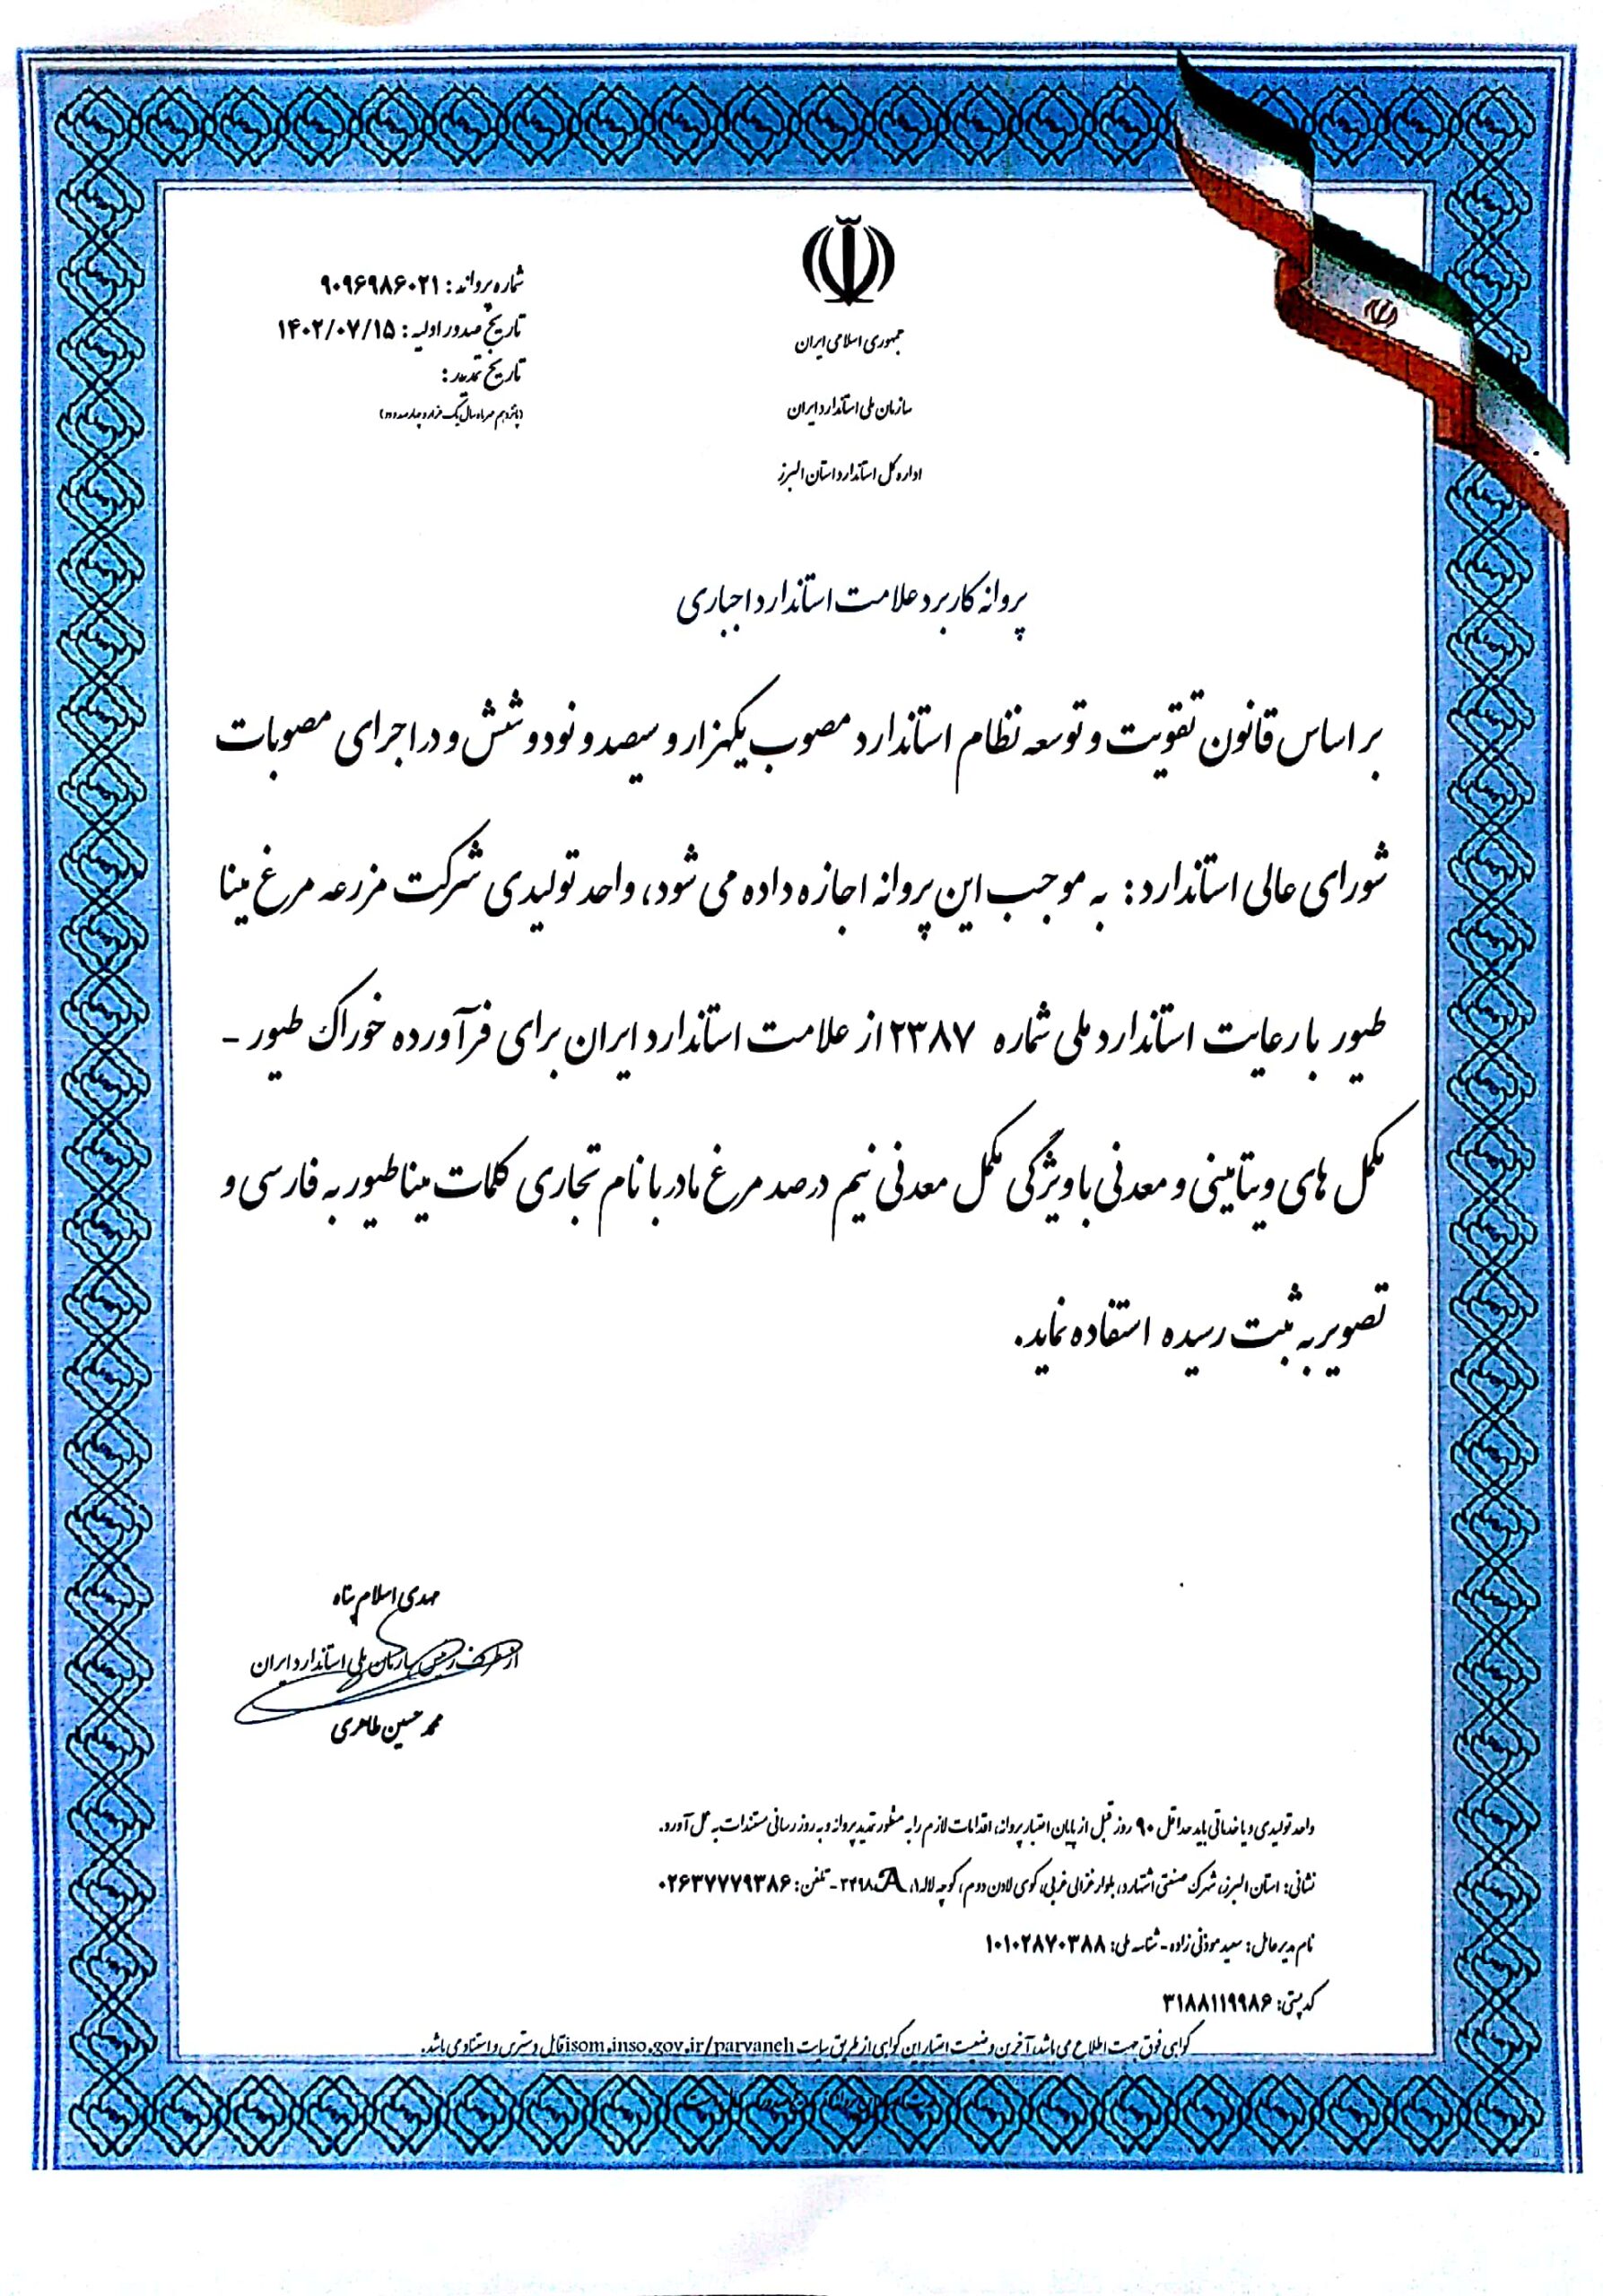 جمهوری اسلامی ایران
سازمان ملی استاندارد ایران
اداره کل استاندارد استان البرز
شماره پروانه : ۹۰۹۶۹۸۶۰۲۱
تاریخ صدور اولیه : ۱۴۰۲/۰۷/۱۵
تاریخ تمدید :
(پانزدهم مهر ماه سال یک هزار و چهارصد و دو)
پروانه کاربرد علامت استاندارد اجباری
بر اساس قانون تقویت و توسعه نظام استاندارد مصوب یکهزار و سیصد و نود و شش و در اجرای مصوبات
شورای عالی استاندارد : به موجب این پروانه اجازه داده می شود، واحد تولیدی شرکت مزرعه مرغ مینا
طیور با رعایت استاندارد ملی شماره ۲۳۸۷ از علامت استاندارد ایران برای فرآورده خوراک طیور -
مکمل های ویتامینی و معدنی با ویژگی مکمل معدنی نیم درصد مرغ مادر با نام تجاری کلمات مینا طیور به فارسی و
تصویر به ثبت رسیده استفاده نماید.
مهدی اسلام پناه
از طرف رئیس سازمان ملی استاندارد ایران
محمد حسین طاهری
واحد تولیدی و یا خدماتی باید حداقل ۹۰ روز قبل از پایان اعتبار پروانه، اقدامات لازم را به منظور تمدید پروانه و به روز رسانی مستندات به عمل آورد.
نشانی: استان البرز، شهرک صنعتی اشتهارد، بلوار غزالی غربی، کوی لادن دوم، کوچه لاله۱، A۲۴۹۸ - تلفن: ۰۲۶۳۷۷۷۹۳۸۶
نام مدیر عامل: سعید موذنی زاده - شناسه ملی: ۱۰۱۰۲۸۷۰۳۸۸
کد پستی: ۳۱۸۸۱۱۹۹۸۶
گواهی فوق جهت اطلاع می باشد، آخرین وضعیت اعتبار این گواهی از طریق سایت isom.inso.gov.ir/parvaneh قابل دسترس و استناد می باشد.